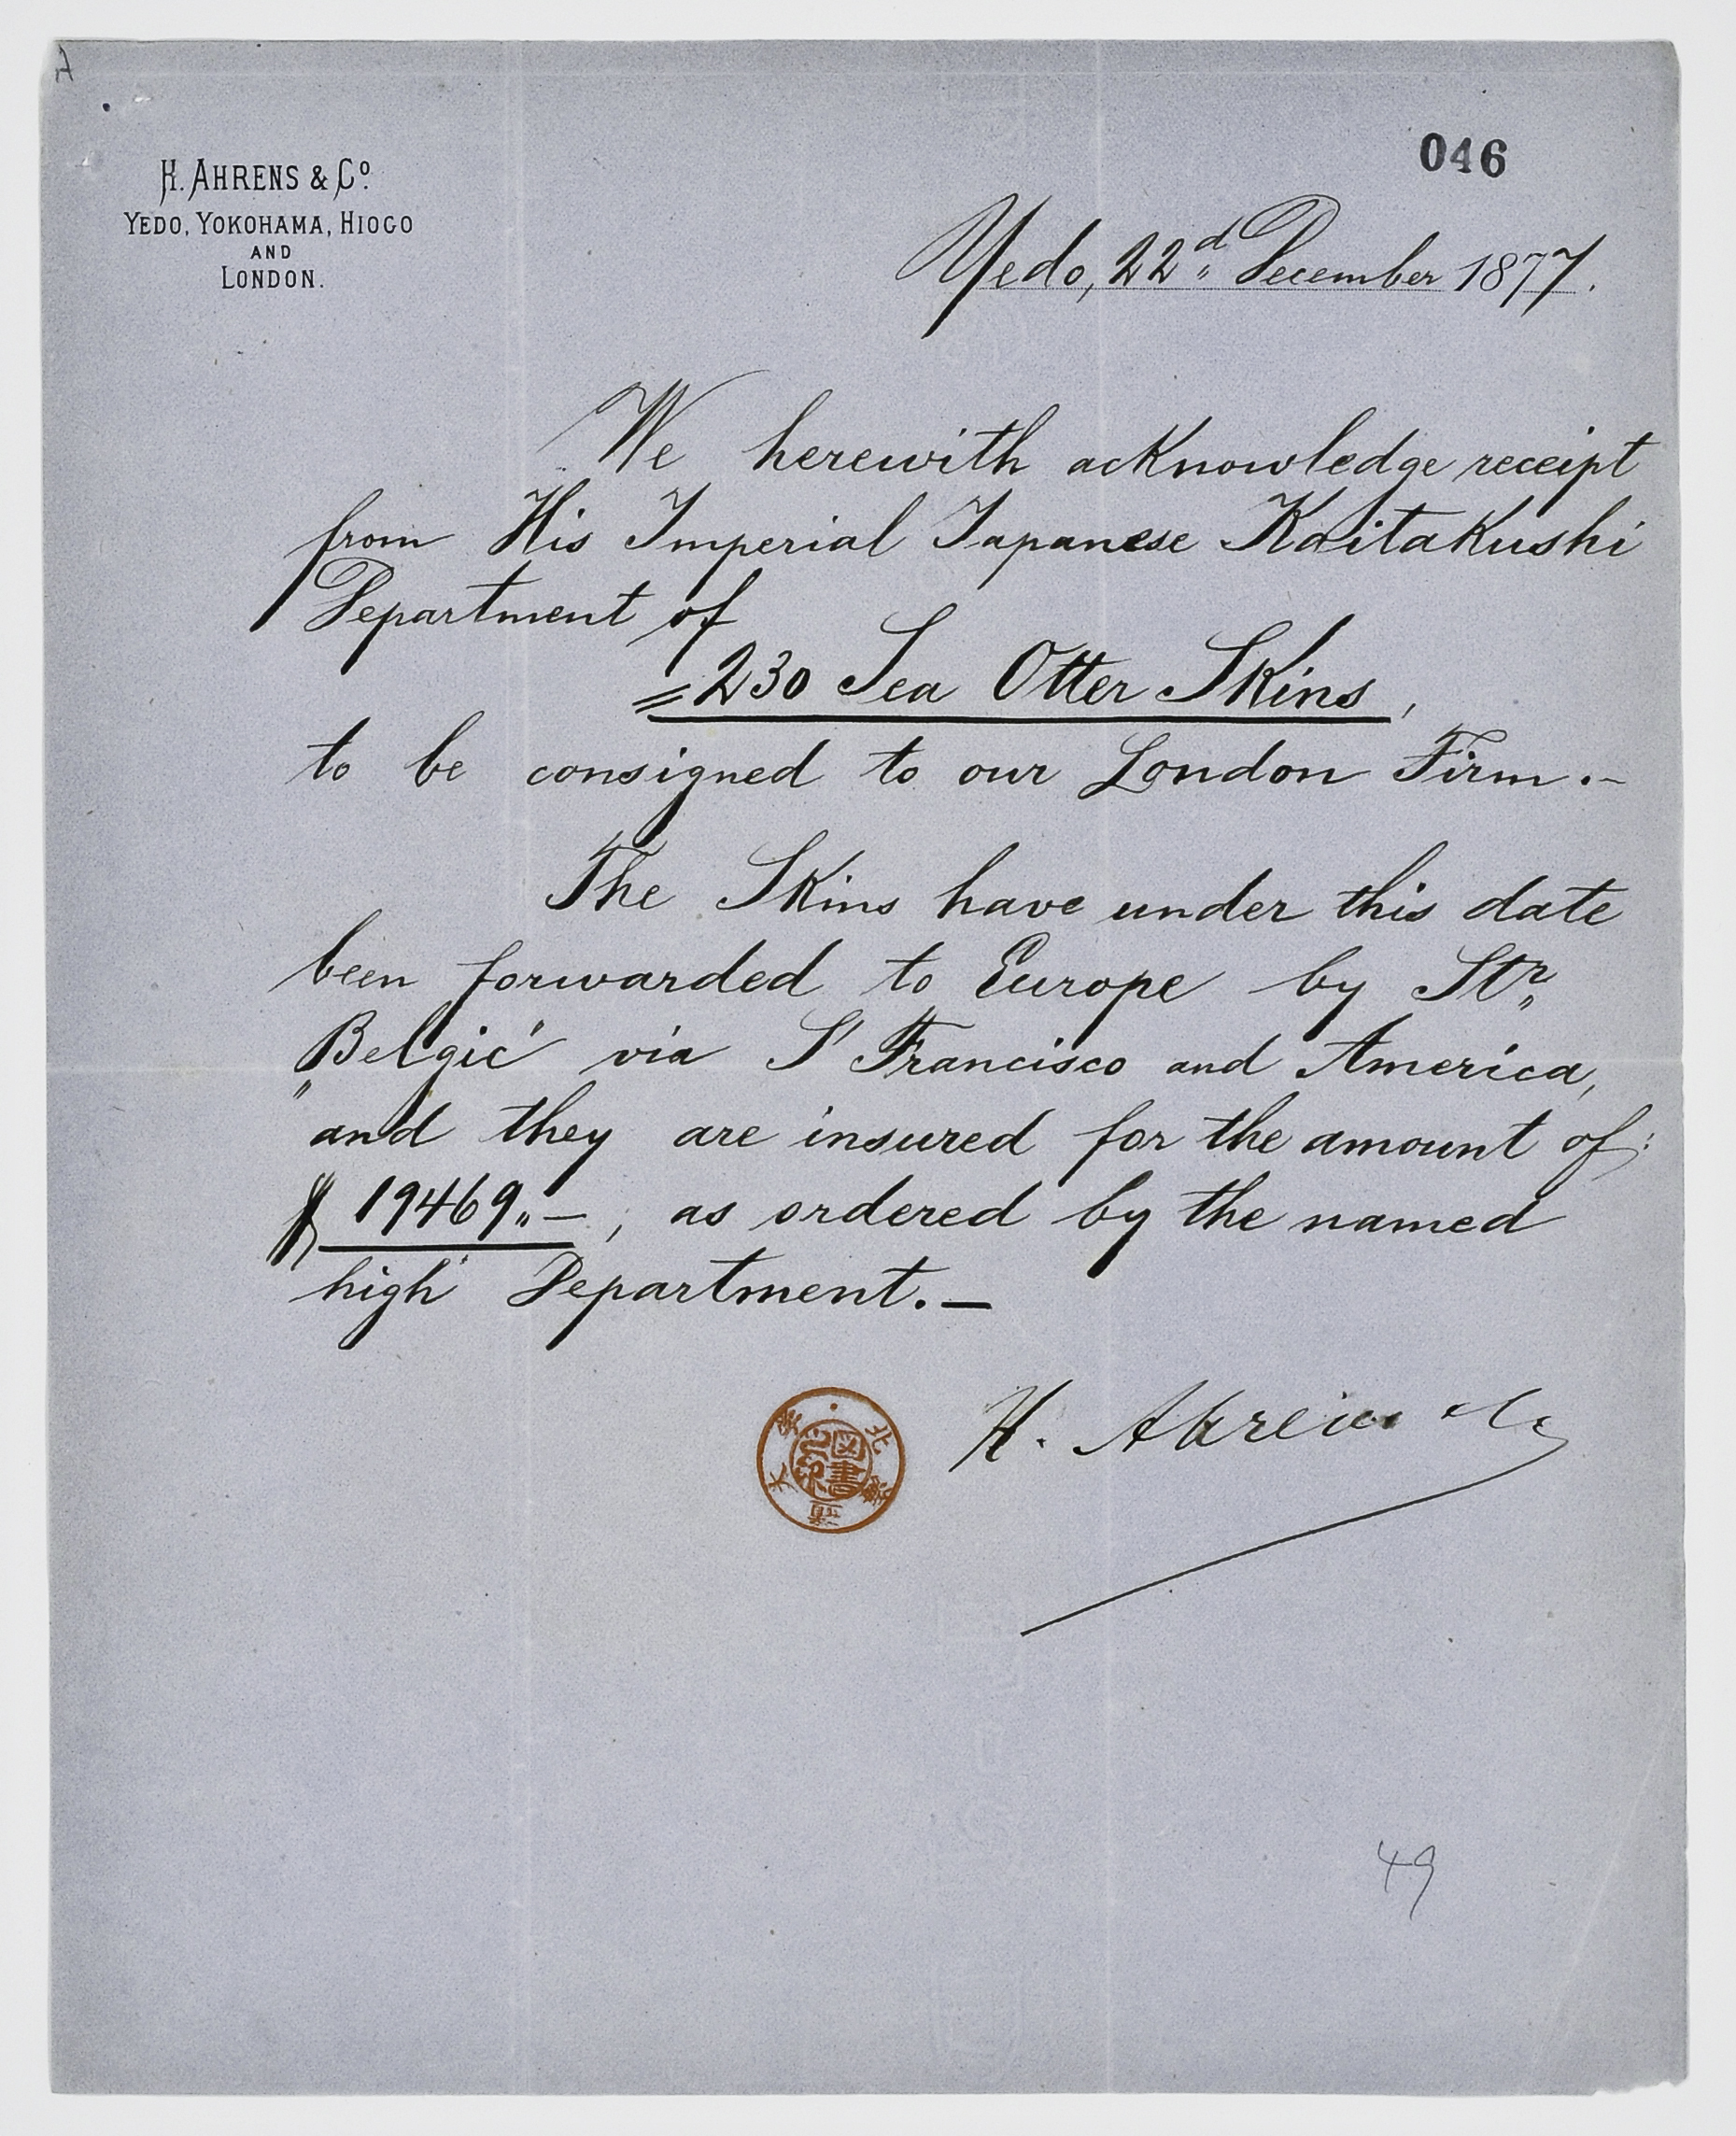 H. AHRENS & Cº
YEDO, YOKOHAMA, HIOGO
AND
LONDON.
046
Yedo, 22d December 1877.
We herewith acknowledge receipt
from His Imperial Japanese Kaitakushi
Department of
= 230 Sea Otter Skins,
to be consigned to our London Firm.-
The Skins have under this date
been forwarded to Europe by Str
"Belgic" via S' Francisco and America,
and they are insured for the amount of:
$ 19469,,—, as ordered by the named
high Department.—
H. Ahrens & Co
北海道大學
圖書
49